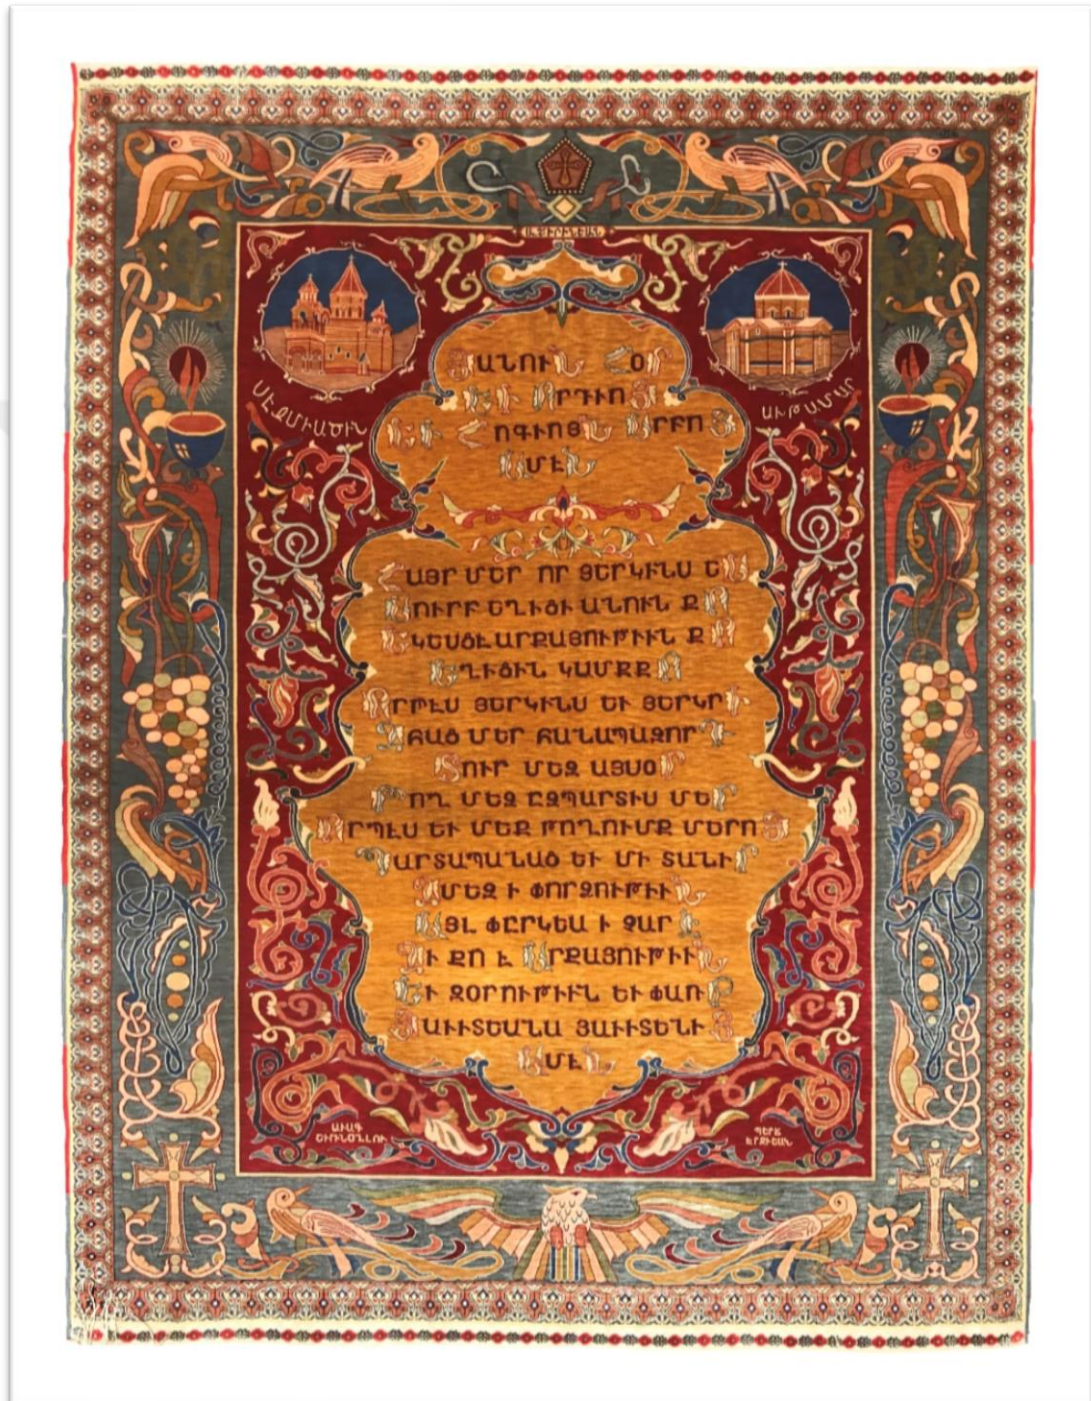 ՅԱՆՈՒՆ ՀՕՐ
ԵՒ ՈՐԴԻՈՅ
ԵՒ ՀՈԳՒՈՅՆ ՍՐԲՈՅ
ԱՄԷՆ
ՍԷՋՄԻԱԾԻՆ
ԱՒԹԱՄԱՐ
ՀԱՅՐ ՄԵՐ ՈՐ ՅԵՐԿԻՆՍ ԵՍ
ՍՈՒՐԲ ԵՂԻՑԻ ԱՆՈՒՆ ՔՈ
ԵԿԵՍՑԷ ԱՐՔԱՅՈՒԹԻՒՆ ՔՈ
ԵՂԻՑԻՆ ԿԱՄՔՔՈ
ՈՐՊԷՍ ՅԵՐԿԻՆՍ ԵՒ ՅԵՐԿՐԻ
ԶՀԱՑ ՄԵՐ ՀԱՆԱՊԱԶՈՐԴ
ՏՈՒՐ ՄԵԶ ԱՅՍՕՐ
ԹՈՂ ՄԵԶ ԸԶՊԱՐՏԻՍ ՄԵՐ
ՈՐՊԷՍ ԵՒ ՄԵՔ ԹՈՂՈՒՄՔ ՄԵՐՈՑ
ՊԱՐՏԱՊԱՆԱՑ ԵՒ ՄԻ ՏԱՆԻՐ
ԶՄԵԶ Ի ՓՈՐՁՈՒԹԻՒՆ
ԱՅԼ ՓԸՐԿԵԱ Ի ՉԱՐԻ
ԶԻ ՔՈ Է ԱՐՔԱՅՈՒԹԻՒՆ
ԵՒ ԶՕՐՈՒԹԻՒՆ ԵՒ ՓԱՌՔ
ՅԱՒԻՏԵԱՆՍ ՅԱՒԻՏԵՆԻՑ
ԱՄԷՆ
ԱՒԱԳ
ՇԻՐԻՆՕՂԼՈՒ
ՊԵՐՃ